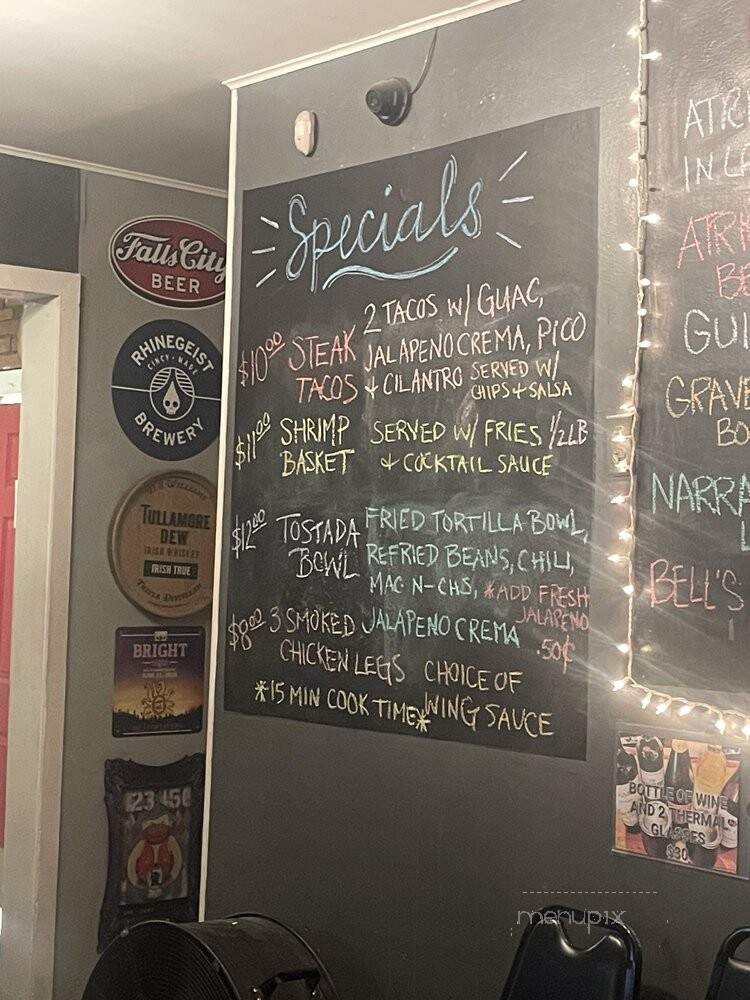 Specials
$10.00 STEAK TACOS
2 TACOS W/ GUAC,
JALAPENO CREMA, PICO
+ CILANTRO SERVED W/
CHIPS + SALSA
$11.00 SHRIMP BASKET
SERVED W/ FRIES 1/2 LB
+ COCKTAIL SAUCE
$12.00 TOSTADA BOWL
FRIED TORTILLA BOWL,
REFRIED BEANS, CHILI,
MAC N-CHS, *ADD FRESH
JALAPENO
JALAPENO CREMA .50¢
$8.00 3 SMOKED
CHICKEN LEGS
CHOICE OF
WING SAUCE
*15 MIN COOK TIME*
Falls City
BEER
RHINEGEIST
CINCY-MADE
BREWERY
TULLAMORE
DEW
IRISH WHISKEY
IRISH TRUE
TRIPLE DISTILLED
BRIGHT
IN
GUI
BELL'S
BOTTLE OF WINE
AND 2 THERMAL
GLASSES
$30
menupix